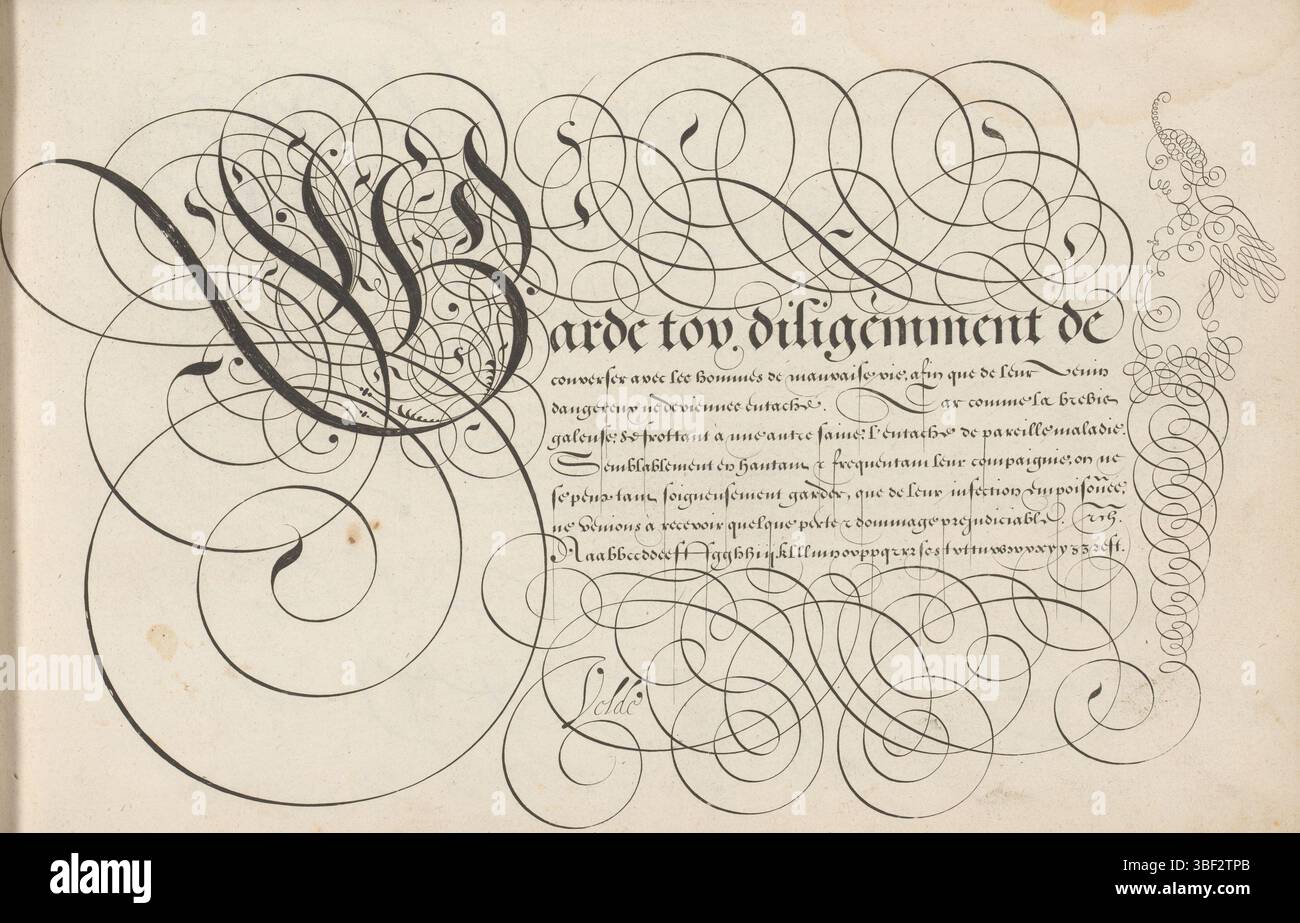 Garde toy diligemment de
converser avec les hommes de mauvaise vie, afin que de leur Venin
dangereux ne deviennes entaché. Car comme la brebis
galeuse, se frottant à une autre saine, l'entache de pareille maladie.
Semblablement en hantant & frequentant leur compaignie, on ne
se peut tant soigneusement garder, que de leur infection empoisoñee,
ne venions à recevoir quelque perte & dommage prejudiciable.
Velde
alamy
Image ID: 3BF2TPB
www.alamy.com